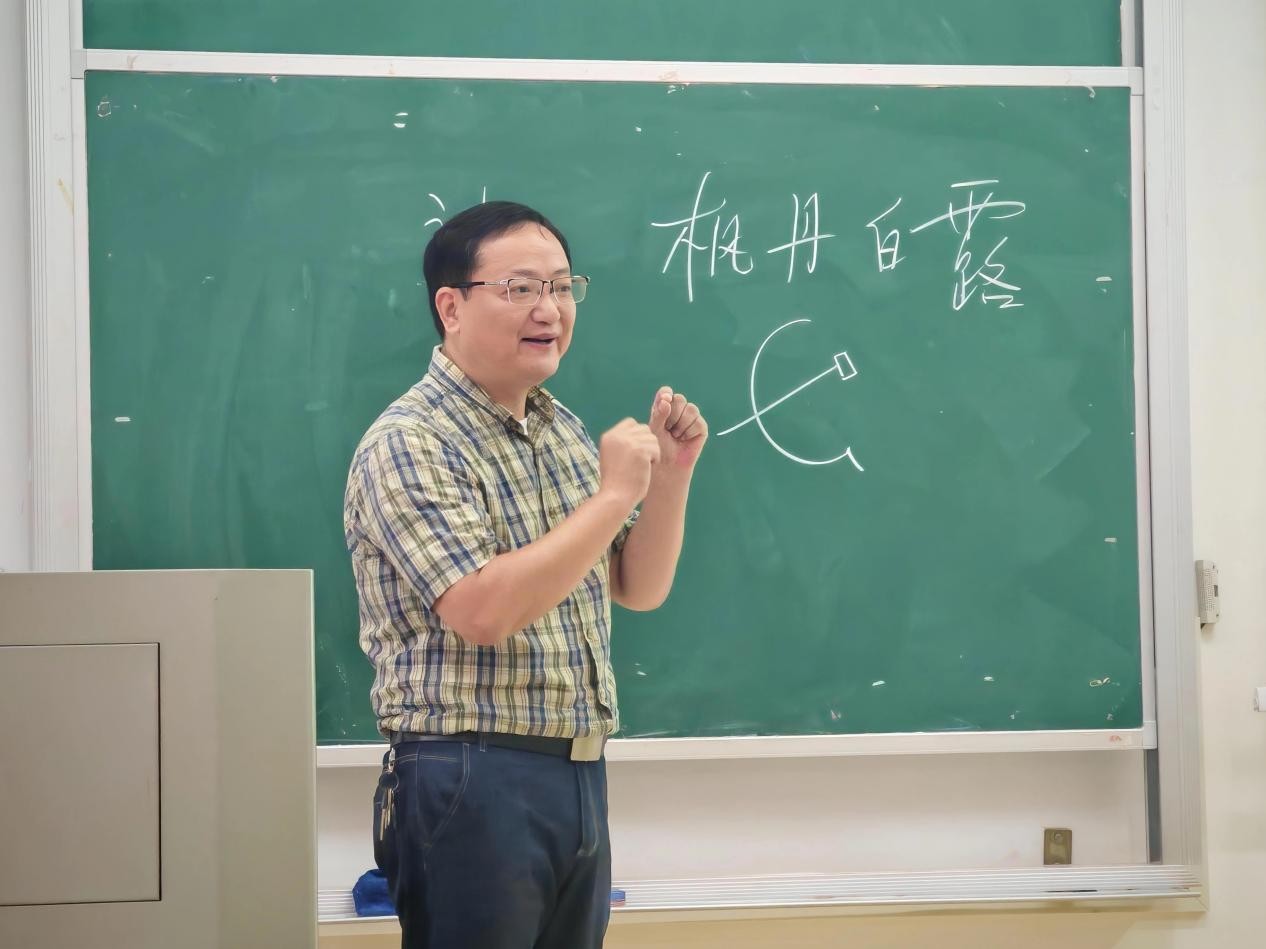 枫丹白露